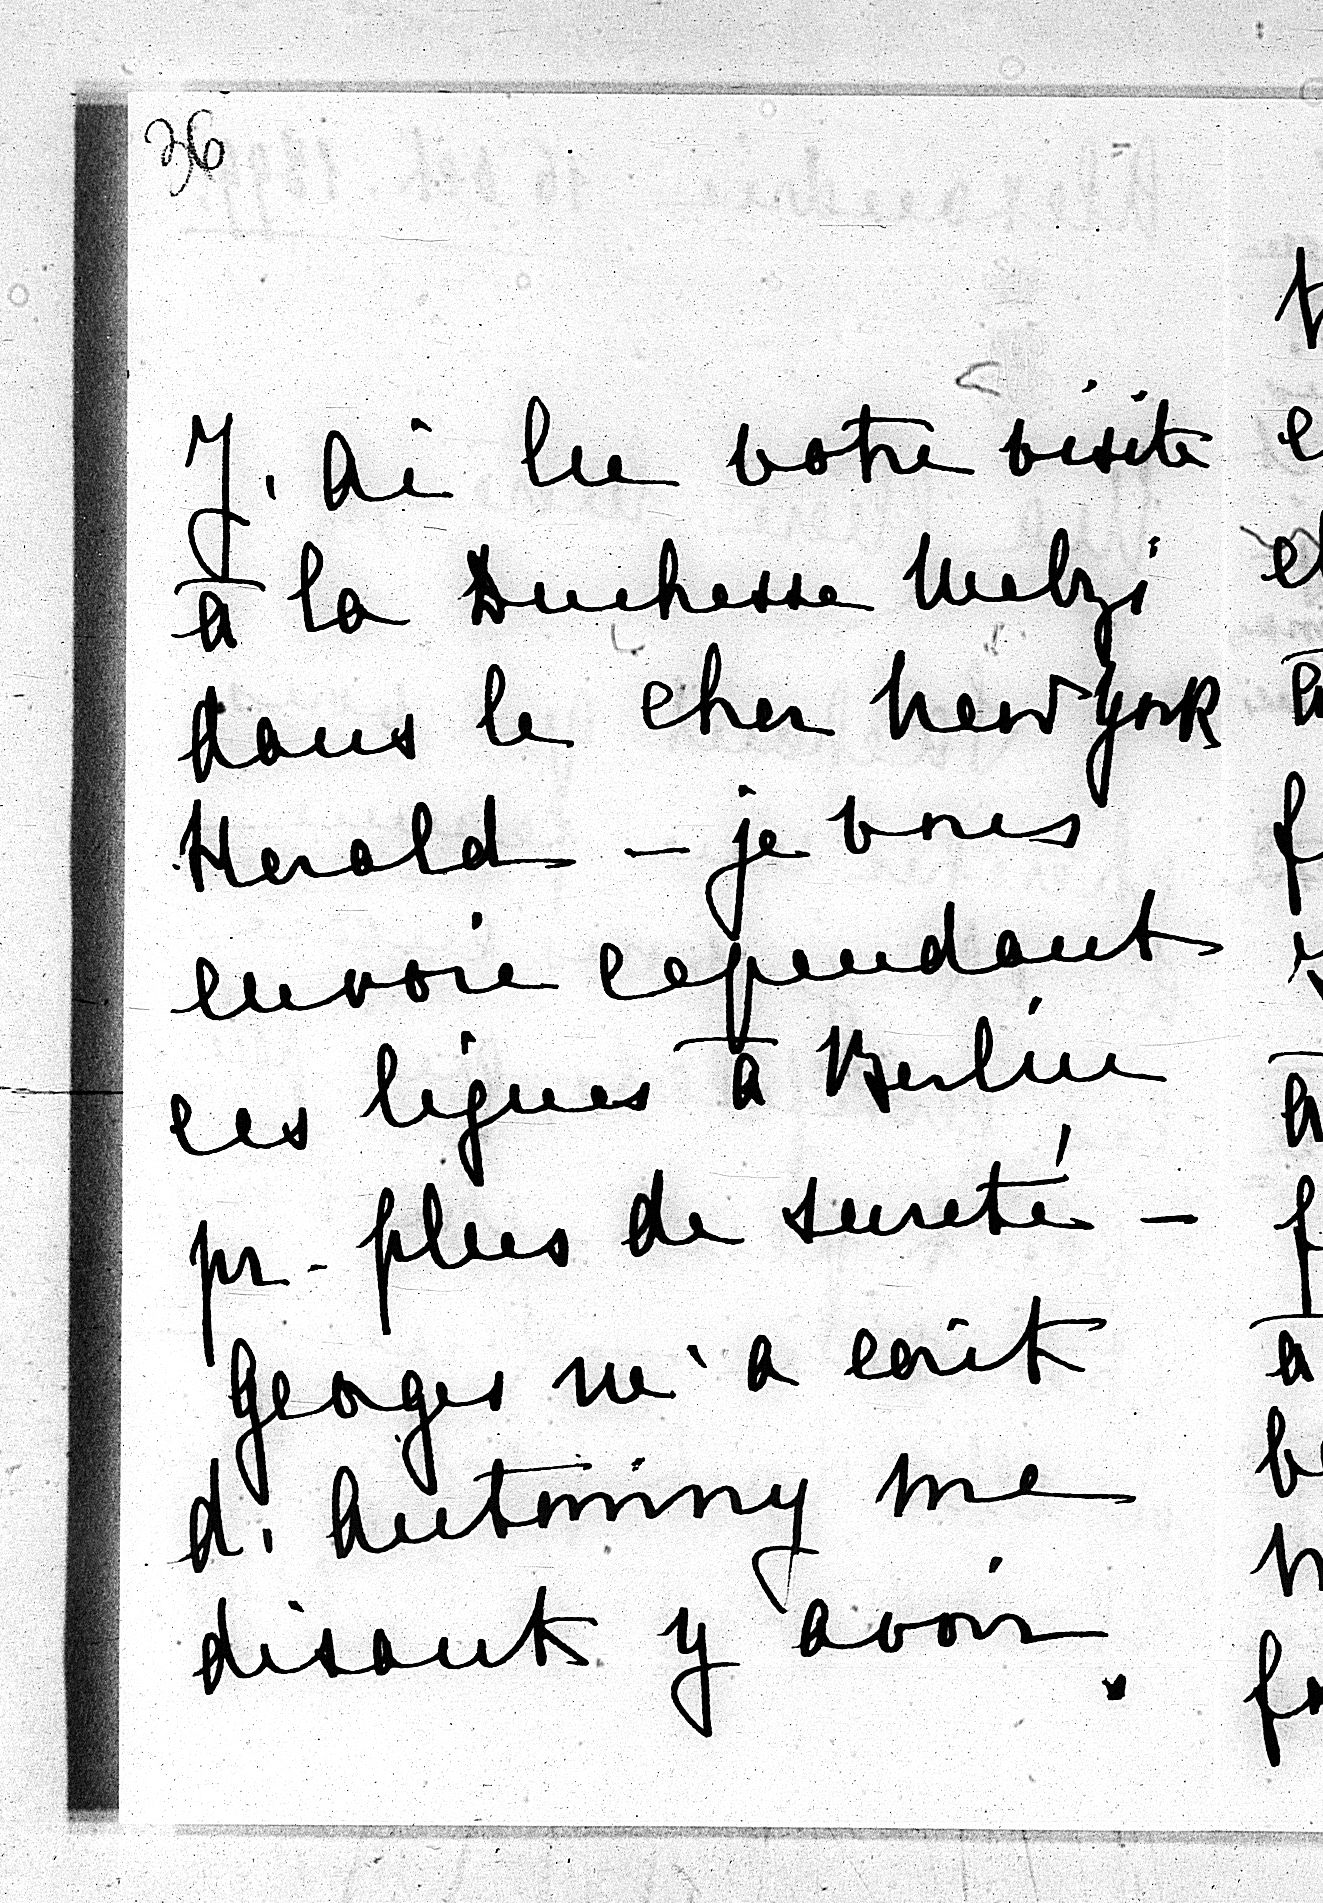 36
J'ai lu votre visite
à la Duchesse Melzi
dans le cher New york
Herald — je vous
envoie cependant
ces lignes à Berlin
pr. plus de sureté —
Georges m'a ecrit
d'Antoniny me
disant y avoir